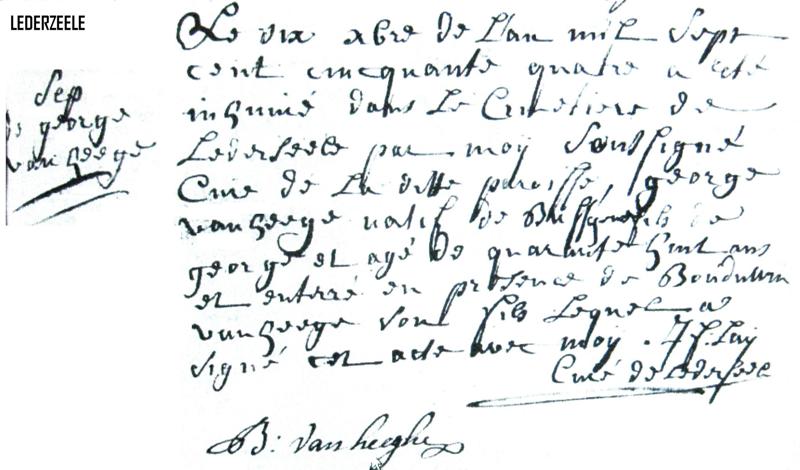 LEDERZEELE
Sep
de george
vanheege
Le dix xbre de L'an mil Sept
cent cincquante quatre a eté
inhumé dans Le Cimetiere de
Lederseele par moy Soussigné
Curé de La ditte paroisse, george
vanheege natif de fils de
george et agé de quarante huit ans
et enterré en presence de Bouduwin
vanheege son fils Lequel a
signé cet acte avec moy.
Curé de Lederseele
B: vanheeghe